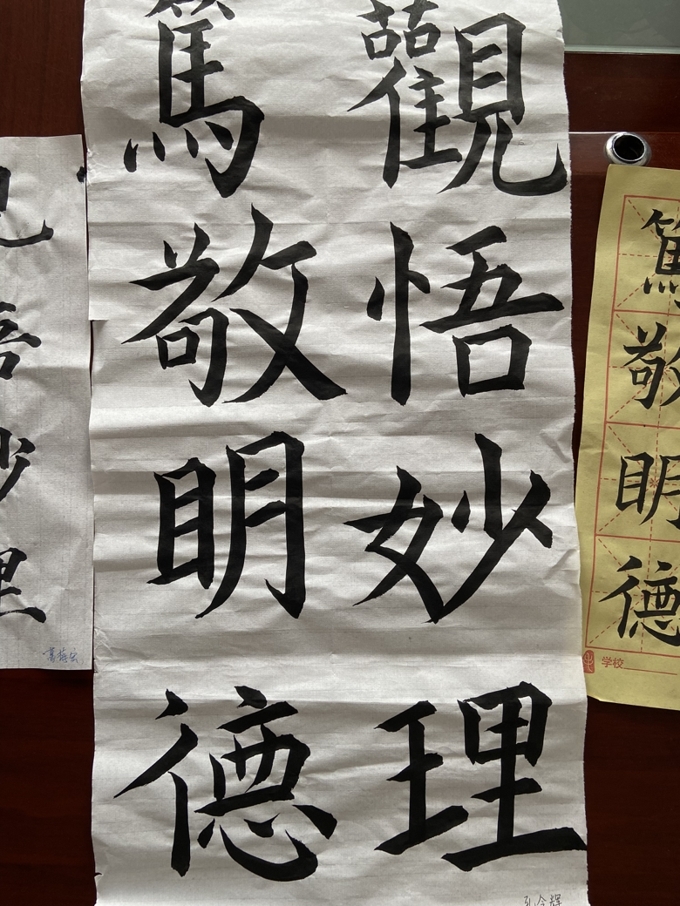 觀悟妙理
篤敬明德
篤敬明德
悟妙理
学校
孔令辉